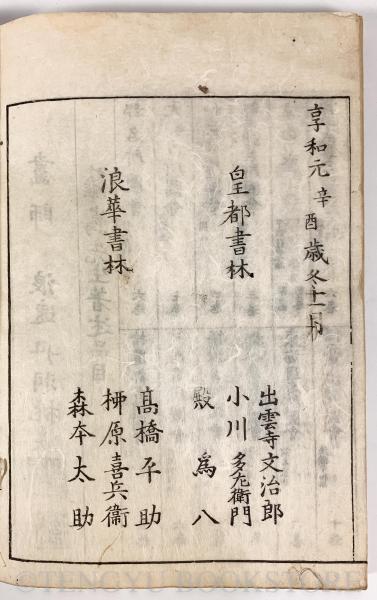 享和元辛酉歳冬十一月
皇都書林
出雲寺文治郎
小川多左衛門
殿為八
浪華書林
髙橋平助
柳原喜兵衞
森本太助
© TENGYU BOOKSTORE